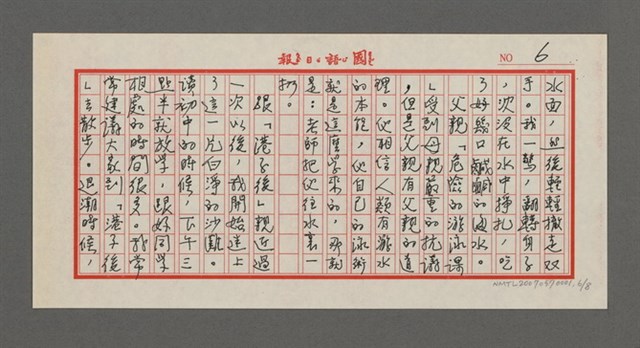 國語日報
NO 6
水面，然後輕輕撤走双
手。我一驚，翻轉身子
，沈沒在水中掙扎，吃
了好幾口鹹鹹的海水。
父親「危險的游泳課
」受到母親嚴重的抗議
，但是父親有父親的道
理。他相信人類有游水
的本能，他自己的泳術
就是這麼學來的，那就
是：老師把他往水裏一
扔。
跟「港子後」親近過
一次以後，我開始迷上
了這一片白淨的沙灘。
讀初中的時候，下午三
點半就放學，跟好同學
相處的時間很多。我常
常建議大家到「港子後
」去散步。退潮時候，
NMTL20070570001, 6/8